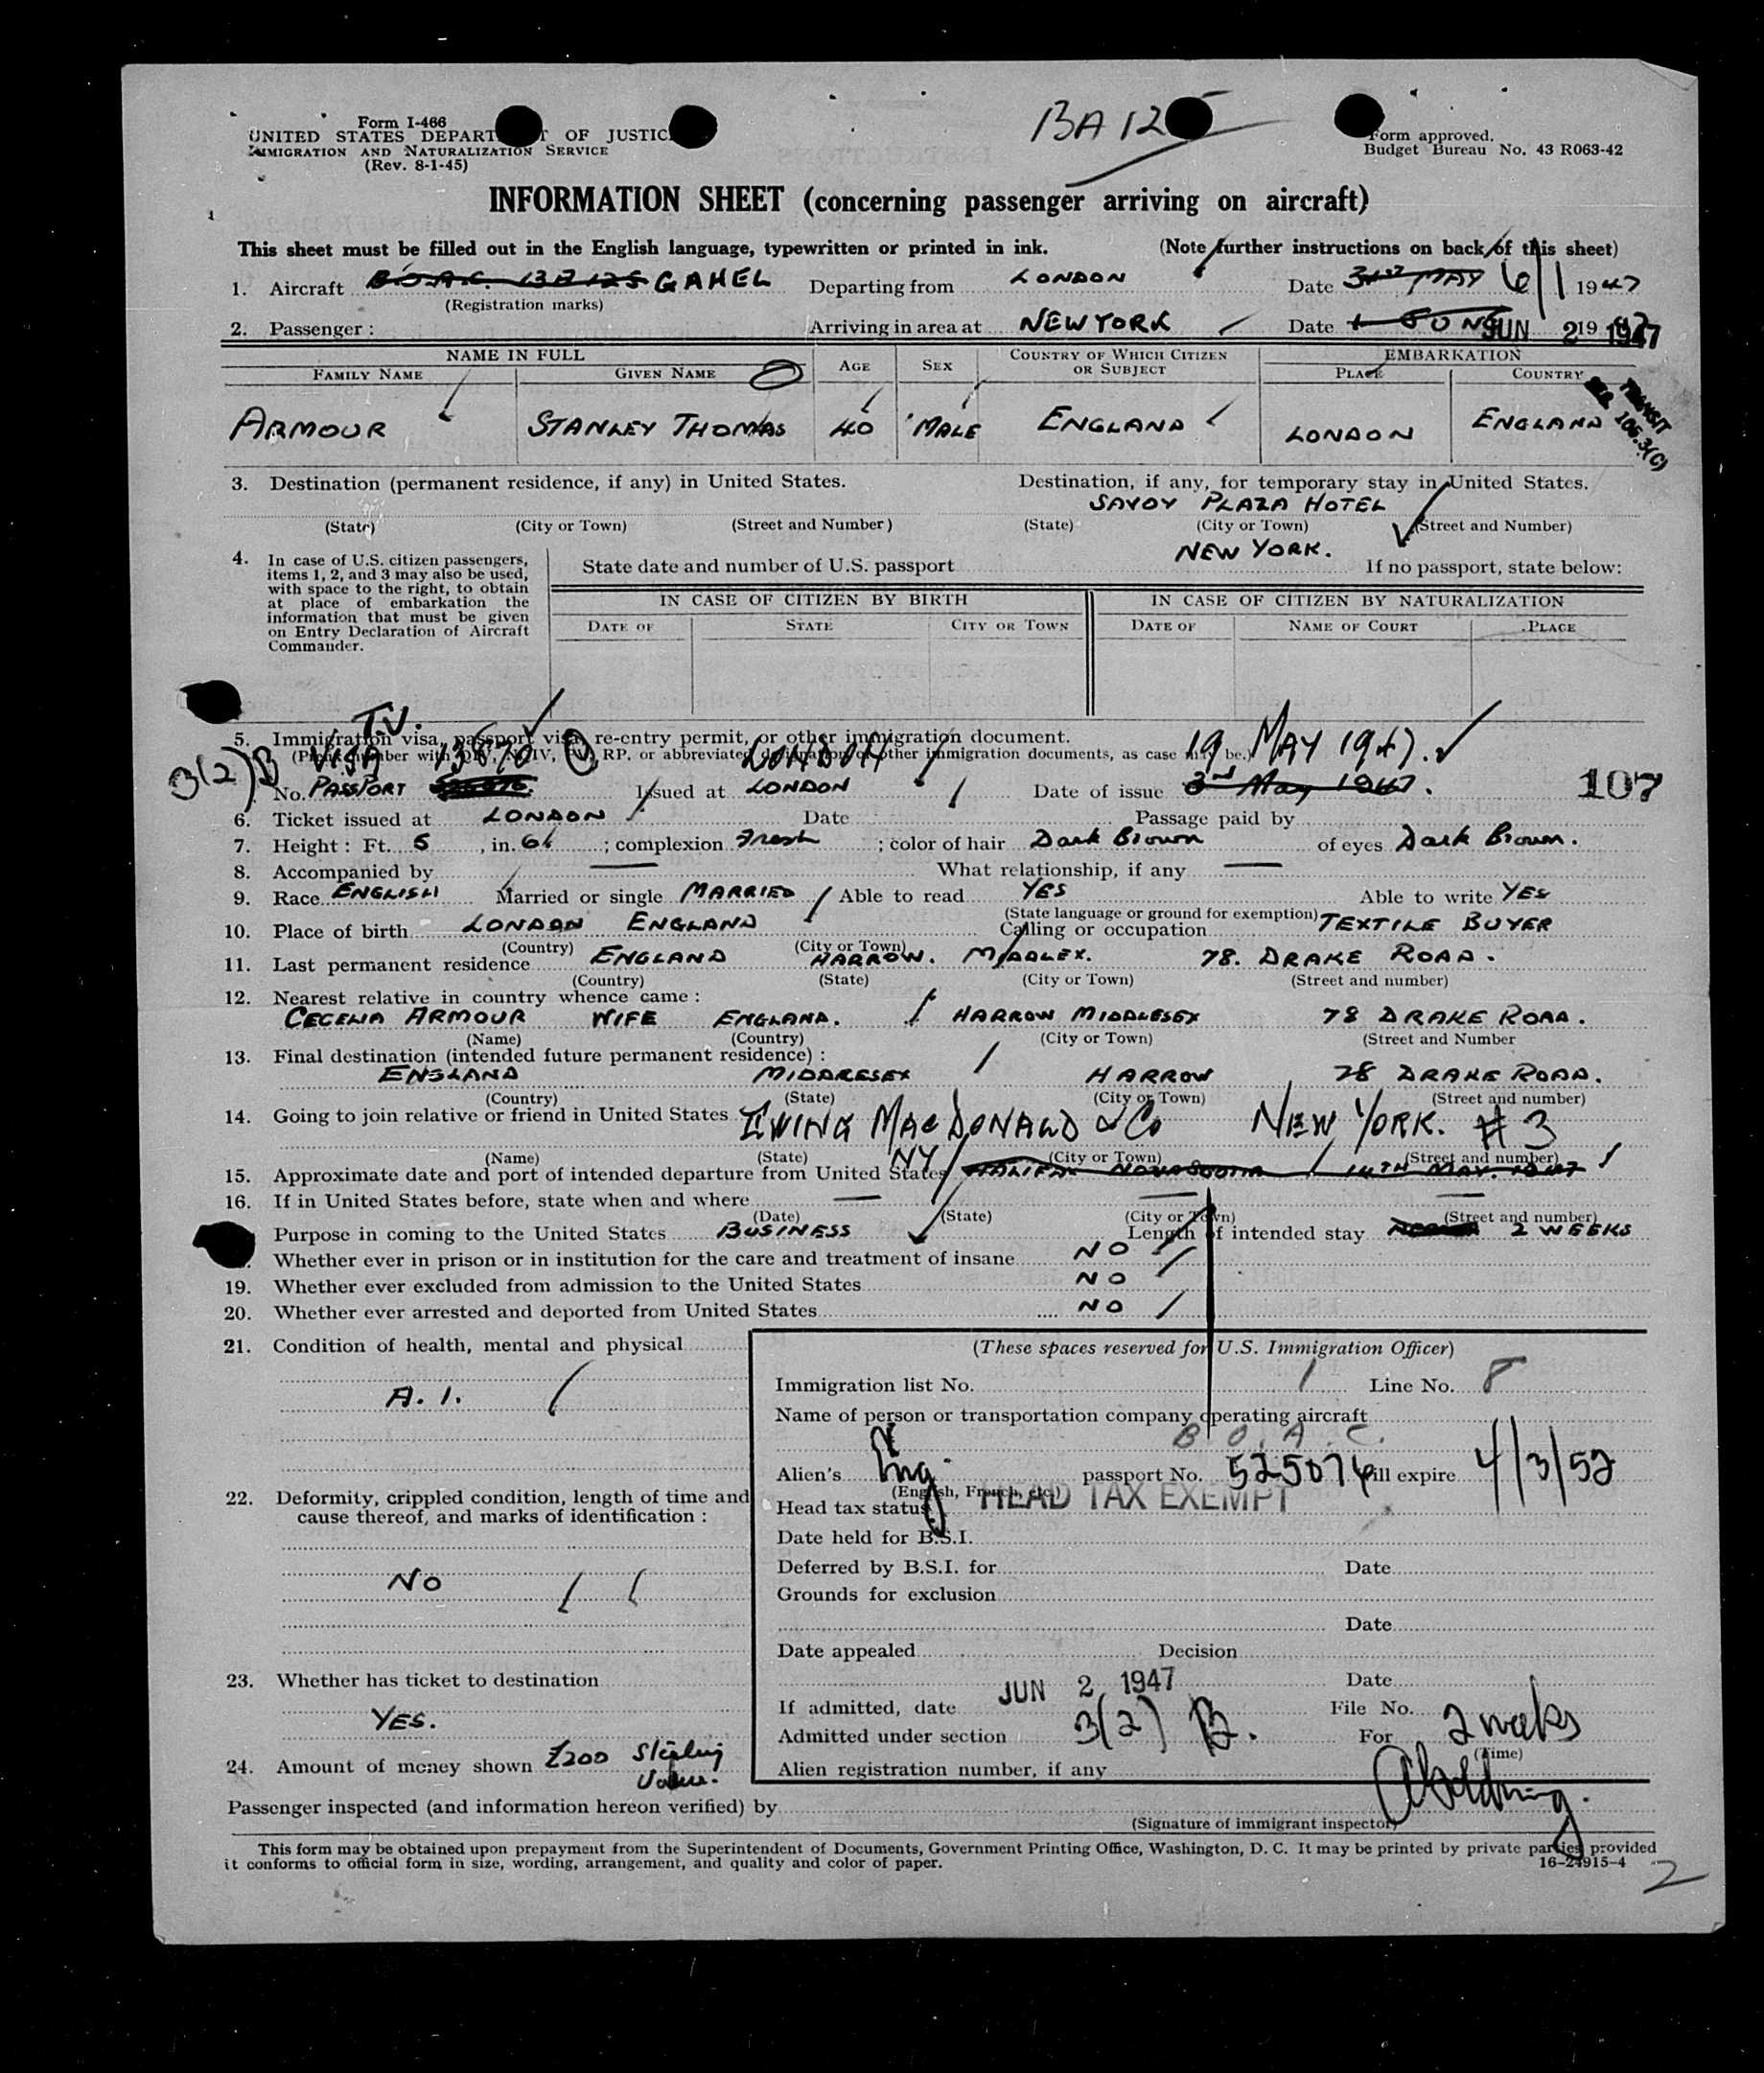 BA 125
Form I-466
UNITED STATES DEPART T OF JUSTIC
IMMIGRATION AND NATURALIZATION SERVICE
(Rev. 8-1-45)
Form approved.
Budget Bureau No. 43 R063-42
INFORMATION SHEET (concerning passenger arriving on aircraft)
This sheet must be filled out in the English language, typewritten or printed in ink. (Note further instructions on back of this sheet)
1. Aircraft B.O.A.C. BA 125 GAHEL Departing from LONDON Date 31st MAY 6/1 1947
(Registration marks)
2. Passenger : Arriving in area at NEW YORK Date 1 JUNE JUN 2 19 1947
NAME IN FULL AGE SEX COUNTRY OF WHICH CITIZEN OR SUBJECT EMBARKATION
FAMILY NAME GIVEN NAME PLACE COUNTRY
ARMOUR STANLEY THOMAS 40 MALE ENGLAND LONDON ENGLAND
TRANSIT
106.3(C)
3. Destination (permanent residence, if any) in United States. Destination, if any, for temporary stay in United States.
SAVOY PLAZA HOTEL
(State) (City or Town) (Street and Number) (State) (City or Town) (Street and Number)
NEW YORK.
4. In case of U.S. citizen passengers, items 1, 2, and 3 may also be used, with space to the right, to obtain at place of embarkation the information that must be given on Entry Declaration of Aircraft Commander.
State date and number of U.S. passport If no passport, state below:
IN CASE OF CITIZEN BY BIRTH IN CASE OF CITIZEN BY NATURALIZATION
DATE OF STATE CITY OR TOWN DATE OF NAME OF COURT PLACE
T.V.
5. Immigration visa, passport visa, re-entry permit, or other immigration document.
VISA 13870 LONDON 19 MAY 1947.
3(2)B
No. PASSPORT Issued at LONDON Date of issue 3rd May 1947. 107
6. Ticket issued at LONDON Date Passage paid by
7. Height : Ft. 5 , in. 6½ ; complexion Fresh ; color of hair Dark Brown of eyes Dark Brown.
8. Accompanied by — What relationship, if any —
9. Race ENGLISH Married or single MARRIED Able to read YES Able to write YES
(State language or ground for exemption)
10. Place of birth LONDON ENGLAND Calling or occupation TEXTILE BUYER
(Country) (City or Town)
11. Last permanent residence ENGLAND HARROW. MIDDLEX. 78. DRAKE ROAD.
(Country) (State) (City or Town) (Street and number)
12. Nearest relative in country whence came :
CECELIA ARMOUR WIFE ENGLAND. HARROW MIDDLESEX 78 DRAKE ROAD.
(Name) (Country) (City or Town) (Street and Number
13. Final destination (intended future permanent residence) :
ENGLAND MIDDLESEX HARROW 78 DRAKE ROAD.
(Country) (State) (City or Town) (Street and number)
14. Going to join relative or friend in United States EWING MACDONALD & Co NEW YORK. #3
(Name) (State) (City or Town) (Street and number)
15. Approximate date and port of intended departure from United States NY HALIFAX NOVA SCOTIA 14TH MAY. 1947
16. If in United States before, state when and where — — —
(Date) (State) (City or Town) (Street and number)
Purpose in coming to the United States BUSINESS Length of intended stay 2 WEEKS
Whether ever in prison or in institution for the care and treatment of insane NO
19. Whether ever excluded from admission to the United States NO
20. Whether ever arrested and deported from United States NO
21. Condition of health, mental and physical
A.1.
22. Deformity, crippled condition, length of time and cause thereof, and marks of identification :
NO
23. Whether has ticket to destination
YES.
24. Amount of money shown £200 Sterling
(These spaces reserved for U.S. Immigration Officer)
Immigration list No. 1 Line No. 8
Name of person or transportation company operating aircraft
B.O.A.C.
Alien's Eng passport No. 525076 will expire 4/3/52
(English, French, etc.)
Head tax status HEAD TAX EXEMPT
Date held for B.S.I.
Deferred by B.S.I. for Date
Grounds for exclusion
Date
Date appealed Decision
Date
If admitted, date JUN 2 1947 File No.
Admitted under section 3(2) B. For 2 weeks
(Time)
Alien registration number, if any
Passenger inspected (and information hereon verified) by
(Signature of immigrant inspector)
This form may be obtained upon prepayment from the Superintendent of Documents, Government Printing Office, Washington, D. C. It may be printed by private parties provided
it conforms to official form in size, wording, arrangement, and quality and color of paper.
16-24915-4
2